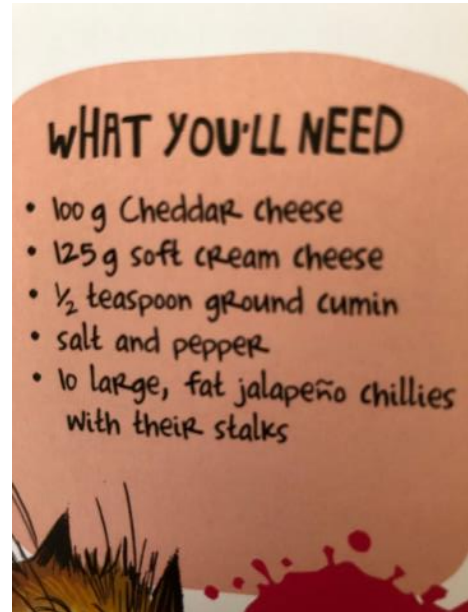 WHAT YOU'LL NEED
• 100 g Cheddar cheese
• 125 g soft cream cheese
• ½ teaspoon ground cumin
• salt and pepper
• 10 large, fat jalapeño chillies
with their stalks